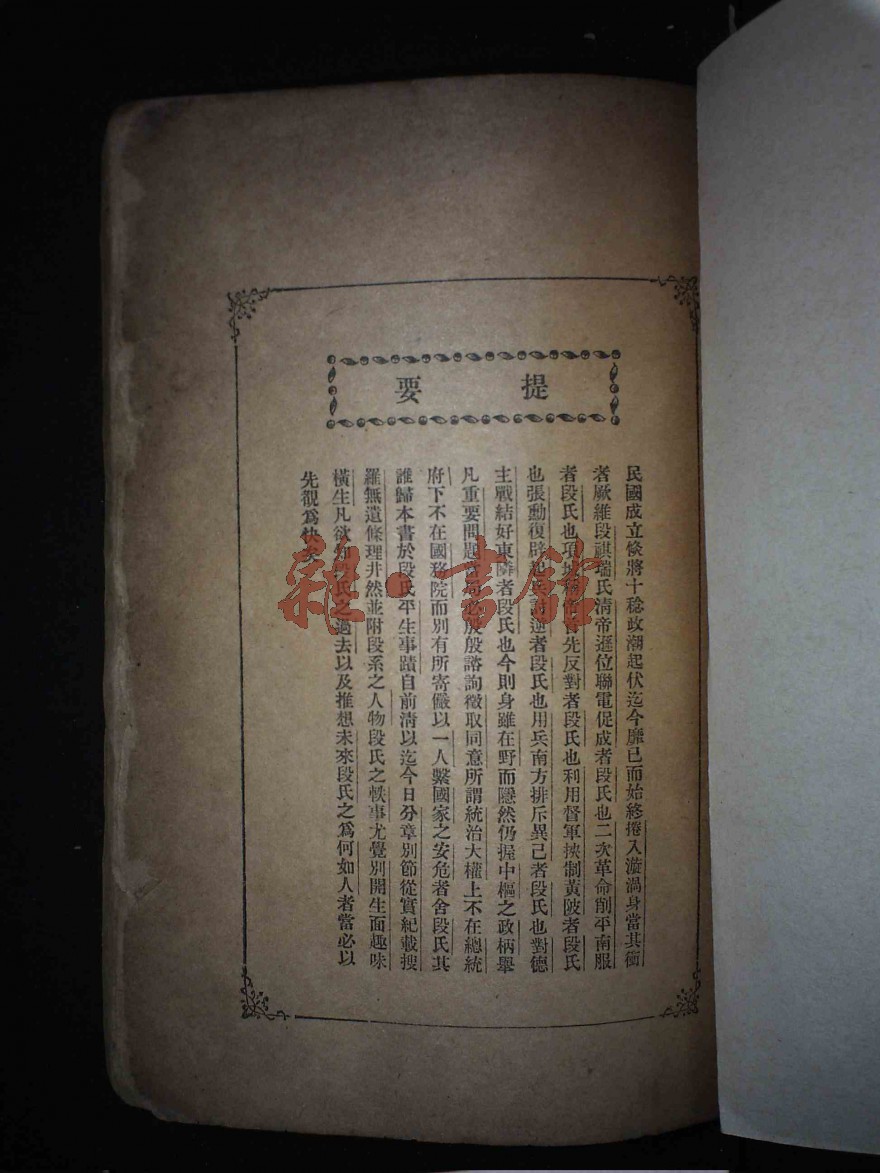 提要
民國成立倐將十稔政潮起伏迄今靡已而始終捲入漩渦身當其衝
者厥維段祺瑞氏清帝遜位聯電促成者段氏也二次革命削平南服
者段氏也項城稱帝首先反對者段氏也利用督軍挾制黃陂者段氏
也張勳復辟起兵討逆者段氏也用兵南方排斥異己者段氏也對德
主戰結好東隣者段氏也今則身雖在野而隱然仍握中樞之政柄舉
凡重要問題當局必殷殷諮詢徵取同意所謂統治大權上不在總統
府下不在國務院而別有所寄儼以一人繫國家之安危者舍段氏其
誰歸本書於段氏平生事蹟自前清以迄今日分章別節從實紀載搜
羅無遺條理井然並附段系之人物段氏之軼事尤覺別開生面趣味
橫生凡欲知段氏之過去以及推想未來段氏之爲何如人者當必以
先覩爲快矣
雜·書館